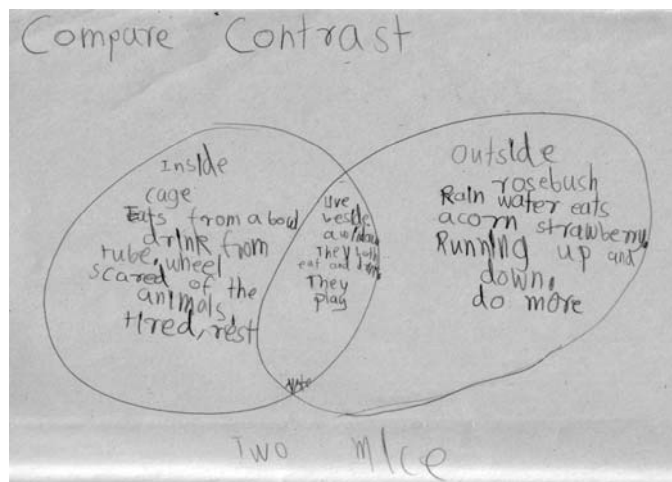 Compare Contrast
Inside
cage
Eats from a bowl
drink from
tube, wheel
scared of the
animals,
tired, rest
live
beside
a window
They both
eat and drink
They
play
outside
rosebush
Rain water eats
acorn strawberry
Running up and
down,
do more
Two Mice